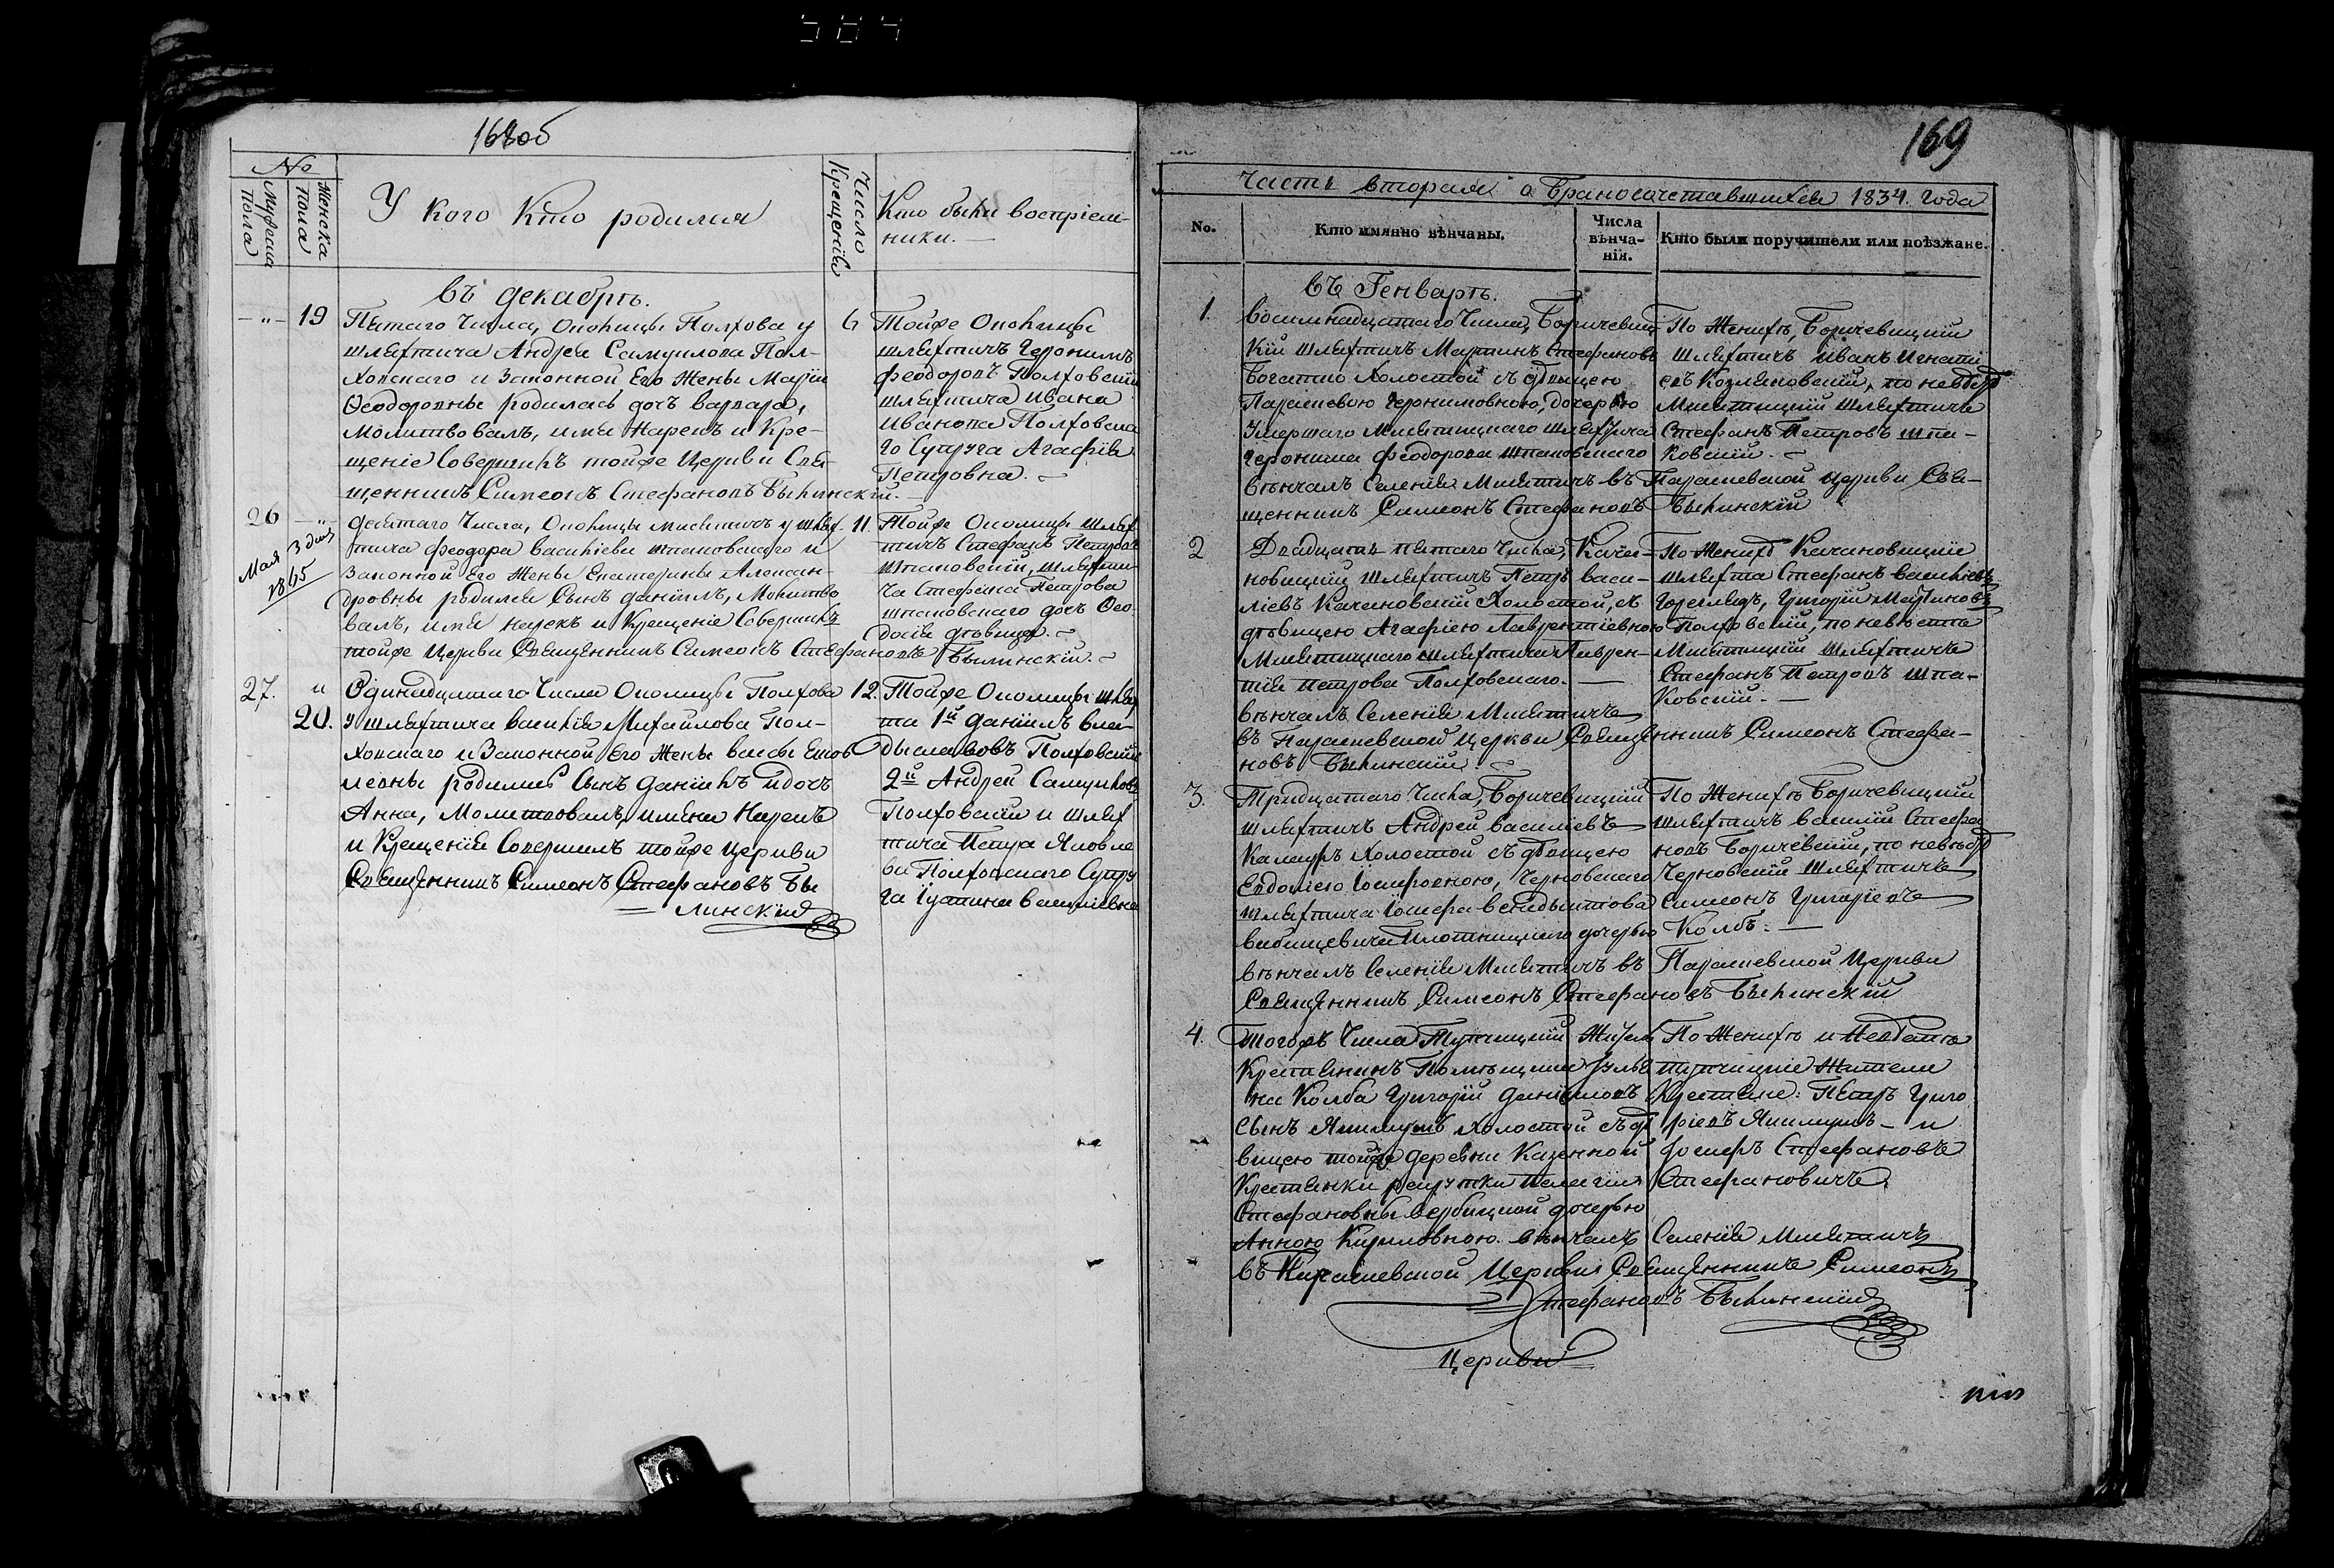 168об
№
Мужеска пола
Женска пола
У кого кто родился
Число Крещенія
Кто были воспріем-
ники.
въ декабрѣ.
19
Пятаго Числа, Околицы Полхова у
шляхтича Андрея Самуилова Пол-
ховскаго и Законной Его Жены Маріи
Ѳеодоровны родилась дочь варвара,
молитвовалъ, имя Нарекъ и Кре-
щеніе Совершилъ тойже Церкви Свя-
щенникъ Симеонъ Стефановъ Былинскій.
6
Тойже Околицы
шляхтичъ Іеронимъ
Феодоровъ Полховскій
шляхтича Ивана
Иванова Полховска
го Супруга Агафія
Петровна.
26
Мая 3 дня
1845
девятаго Числа, Околицы мисятичъ у шлях-
тича Феодора васильева шпаковскаго и
Законной Его Жены Екатерины Алексан-
дровны родился Сынъ даніилъ, Молитво
валъ, имя нарекъ и Крещеніе Совершилъ
тойже Церкви Священникъ Симеонъ Стефановъ Былинскій.
11.
Тойже Околицы шлях
тичъ Стефанъ Петровъ
Шпаковскій, шляхти-
ча Стефана Петрова
шпаковскаго дочь Ѳео-
досія дѣвица.
27.
20.
Одинадцатаго Числа Околицы Полхова
у шляхтича василія Михайлова Пол-
ховскаго и Законной Его Жены васы
родились Сынъ даніилъ и дочь
Анна, Молитвовалъ, имена Нарекъ
и Крещеніе Совершилъ тойже Церкви
Священникъ Симеонъ Стефановъ Бы
линскій
12.
Тойже Околицы шлях
та 1й даніилъ вла-
диславовъ Полховскій
2й Андрей Самуиловъ
Полховскій и шлях
тича Петра Яковле
ва Полховскаго Супру
га Іустина васильевна
169
Часть вторая о бракосочетавшихся 1834. Года
No.
Кто имянно вѣнчаны.
Числа
вѣнча-
нія.
Кто были поручители или поѣзжане.
въ Генварѣ.
1.
восимнадцатаго Числа, Боричевиц-
кій шляхтичъ Мартинъ Стефановъ
Богатко Холостой съ дѣвицею
Параскевою Іеронимовною, дочерью
Умершаго Мисятицкаго шляхтича
Іеронима Феодорова Шпаковскаго
вѣнчалъ Селенія Мисятичъ въ Параскевской Церкви Свя-
щенникъ Симеонъ Стефановъ Былинскій
По Женихѣ, Боричевицкій
шляхтичъ Иванъ Игнаті
евъ Козляковскій, по невѣстѣ
Мисятицкій шляхтичъ
Стефанъ Петровъ шпа-
ковскій.
2
Двадцать пятаго Числа, Качановицкій шляхтичъ Петръ васи-
ліевъ Качановскій Холостой, съ
дѣвицею Агафіею Лаврентіевною
Мисятицкаго шляхтича Лаврен-
тія Петрова Полховскаго.
вѣнчалъ Селенія Мисятичъ
въ Параскевской Церкви Священникъ Симеонъ Стефа-
новъ Былинскій
По Женихѣ Качановицкіе
шляхта Стефанъ васильевъ
Григорій Мартиновъ
Полховскій, по невѣстѣ
Мисятицкій шляхтичъ
Стефанъ Петровъ Шпа-
ковскій.
3.
Тридцатаго Числа, Боричевицкій
шляхтичъ Андрей василіевъ
Холостой съ дѣвицею
Евдокіею Іосифовною, Черновскаго
шляхтича Іосифа венедиктова
Плотницкаго дочерью
вѣнчалъ Селенія Мисятичъ въ Параскевской Церкви
Священникъ Симеонъ Стефановъ Былинскій
По Женихѣ Боричевицкій
шляхтичъ василій Стефа
новъ Боричевскій, по невѣстѣ
Черновскій шляхтичъ
Симеонъ Григоріевъ
Колбъ.
4.
тогожъ Числа Тупчицкій Житель
Крестьянинъ Помѣщика
Колба Григорій даніиловъ
Сынъ Якимукъ холостой съ дѣ
вицею тойже деревни Казенной
Крестьянки рекрутки Пелагіи
Стефановны вербицкой дочерью
Анною Кириловною. вѣнчалъ Селенія Мисятичъ
въ Параскевской Церкви Священникъ Симеонъ
Стефановъ Былинскій
По Женихѣ и Невѣстѣ
тупчицкіе Жители
Крестьяне: Петръ Григо
ріевъ Якимукъ - и
Іосифъ Стефановъ
Стефановичъ.
Церкви